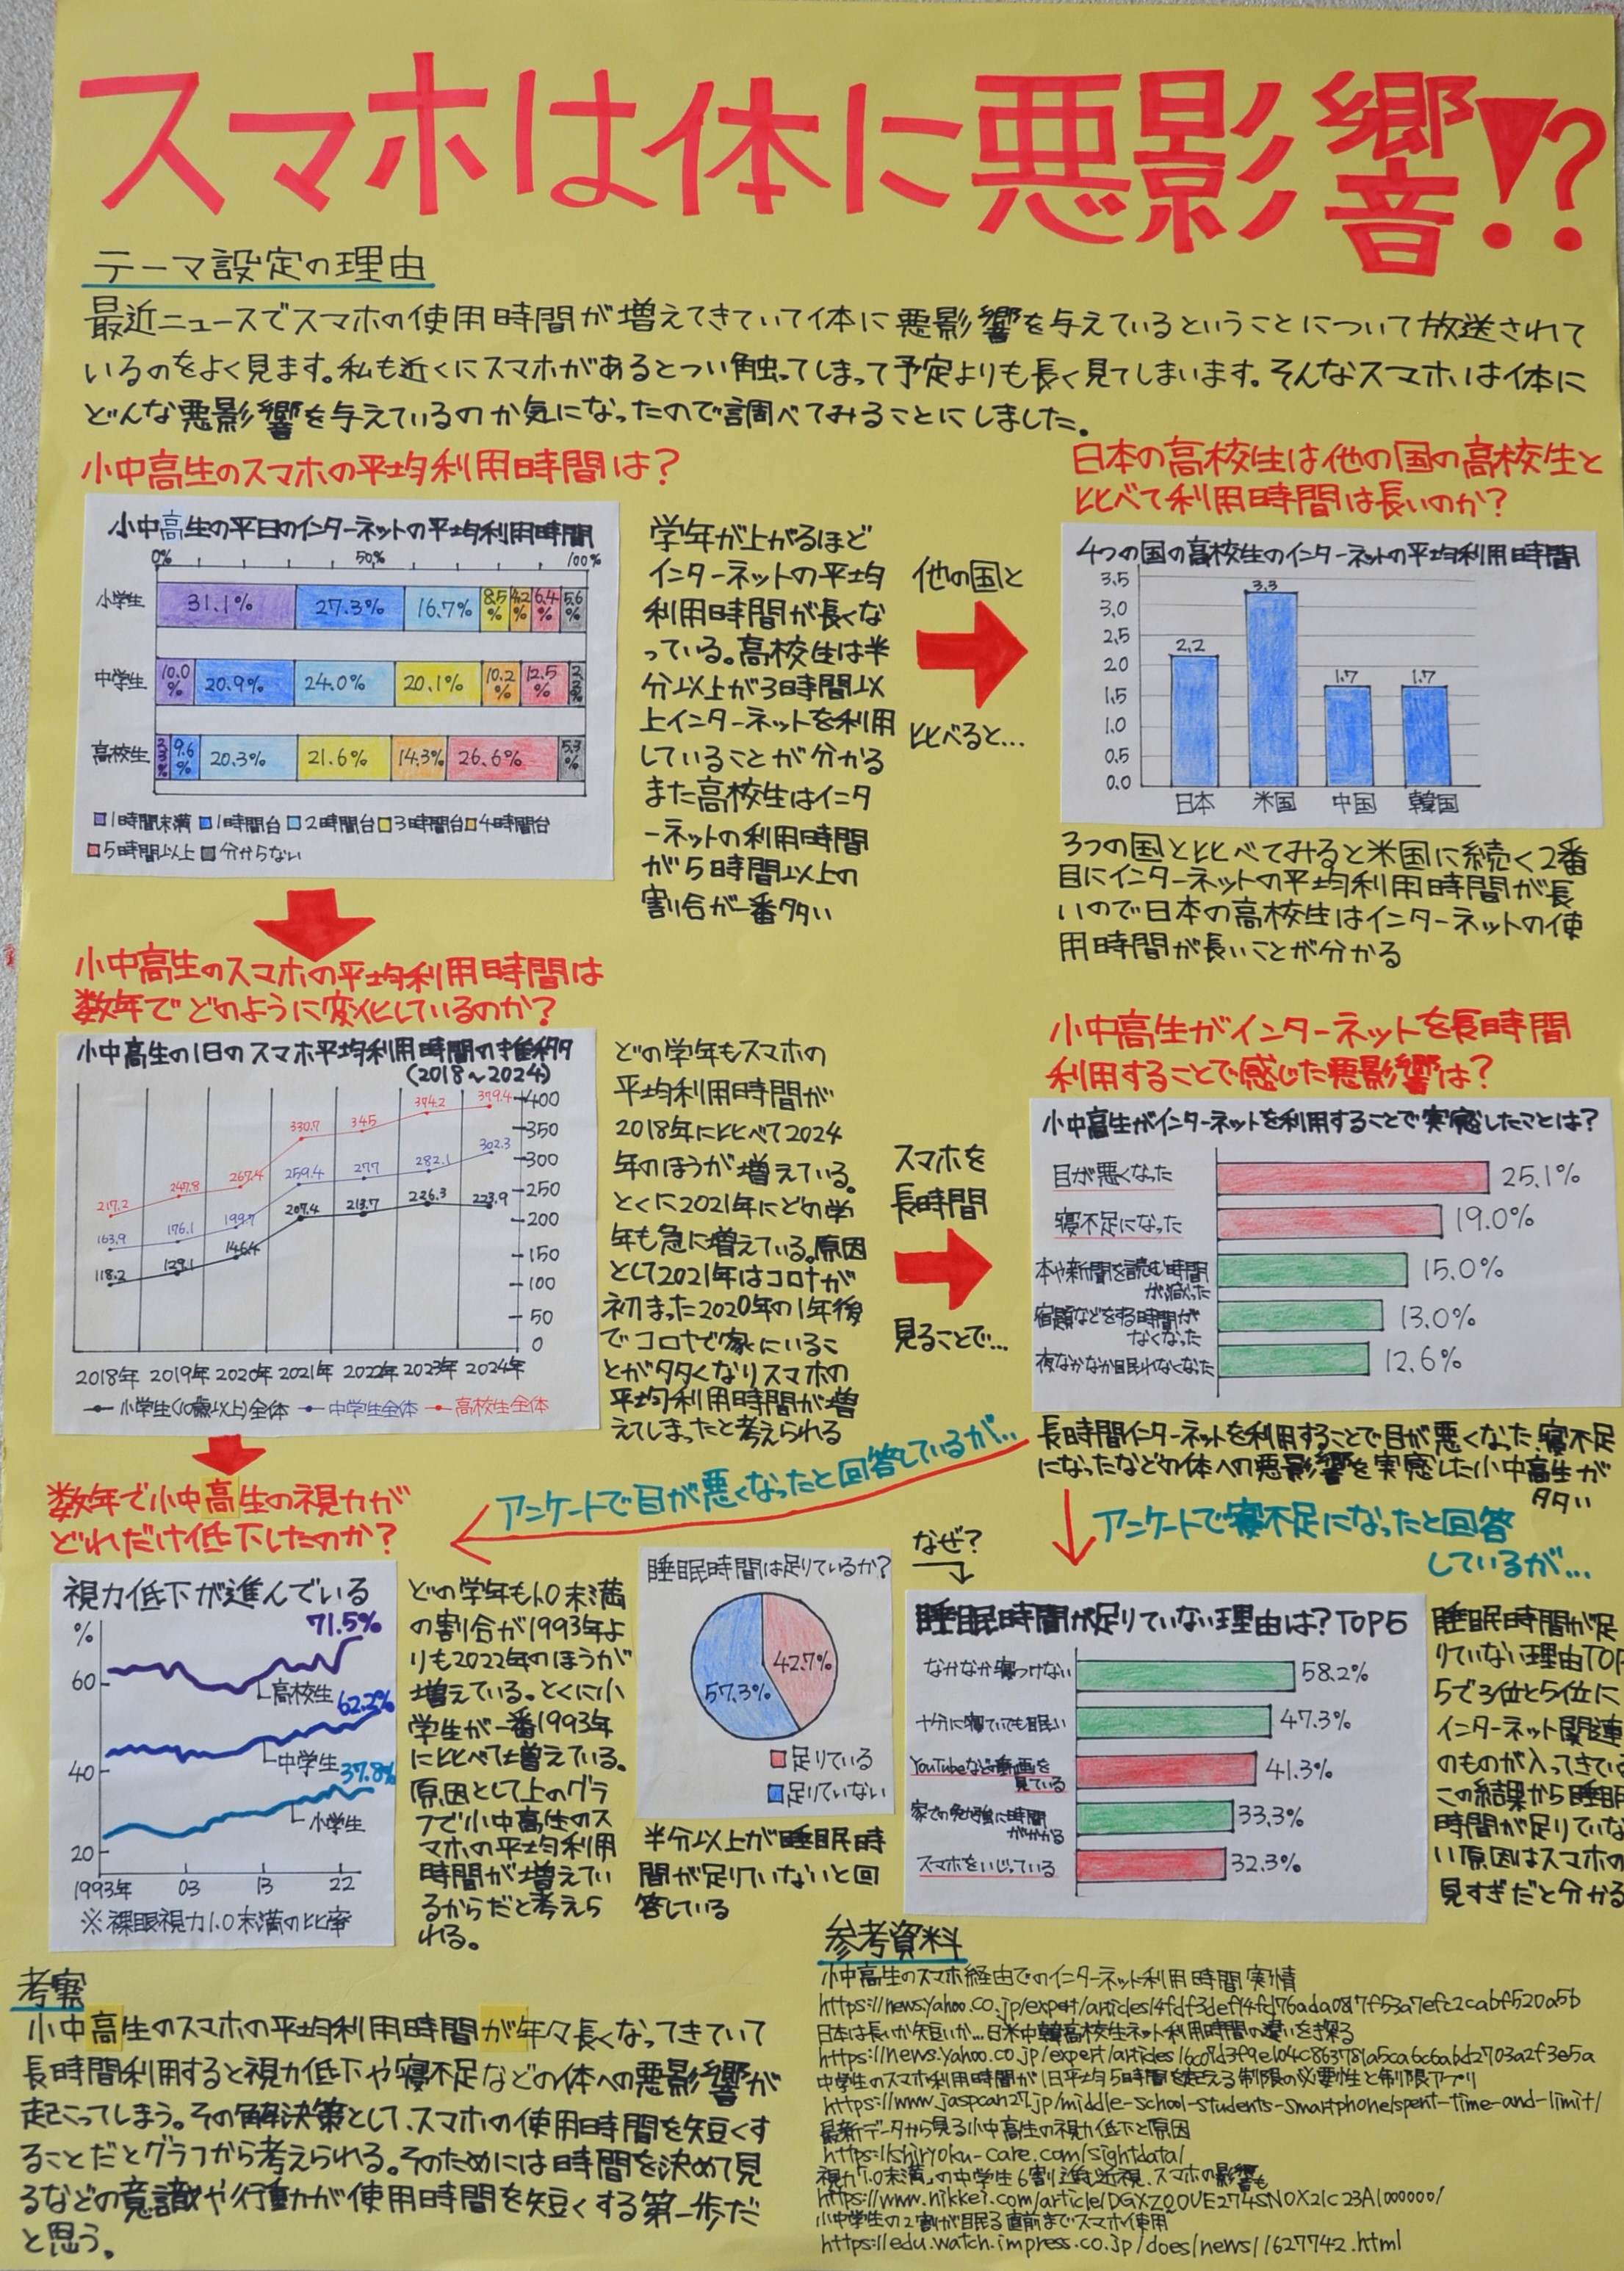 スマホは体に悪影響!?
テーマ設定の理由
最近ニュースでスマホの使用時間が増えてきていて体に悪影響を与えているということについて放送されて
いるのをよく見ます。私も近くにスマホがあるとつい触ってしまって予定よりも長く見てしまいます。そんなスマホは体に
どんな悪影響を与えているのか気になったので調べてみることにしました。
小中高生のスマホの平均利用時間は?
小中高生の平日のインターネットの平均利用時間
0% 50% 100%
小学生 31.1% 27.3% 16.7% 8.5% 4.2% 6.4% 5.6%
中学生 10.0% 20.9% 24.0% 20.1% 10.2% 12.5%
高校生 9.6% 20.3% 21.6% 14.3% 26.6% 5.3%
1時間未満 1時間台 2時間台 3時間台 4時間台
5時間以上 分からない
学年が上がるほど
インターネットの平均
利用時間が長くな
っている。高校生は半
分以上が3時間以
上インターネットを利用
していることが分かる
また高校生はインタ
ーネットの利用時間
が5時間以上の
割合が一番多い
他の国と
比べると…
日本の高校生は他の国の高校生と
比べて利用時間は長いのか?
4つの国の高校生のインターネットの平均利用時間
3.5
3.0
2.5
2.0
1.5
1.0
0.5
0.0
2.2 3.3 1.7 1.7
日本 米国 中国 韓国
3つの国と比べてみると米国に続く2番
目にインターネットの平均利用時間が長
いので日本の高校生はインターネットの使
用時間が長いことが分かる
小中高生のスマホの平均利用時間は
数年でどのように変化しているのか?
小中高生の1日のスマホ平均利用時間の推移
(2018~2024)
217.2 247.8 267.4 330.7 345 374.2 379.4
163.9 176.1 199.7 259.4 277 282.1 302.3
118.2 129.1 146.4 207.4 213.7 226.3 223.9
400
350
300
250
200
150
100
50
0
2018年 2019年 2020年 2021年 2022年 2023年 2024年
小学生(10歳以上)全体 中学生全体 高校生全体
どの学年もスマホの
平均利用時間が
2018年に比べて2024
年のほうが増えている。
とくに2021年にどの学
年も急に増えている。原因
として2021年はコロナが
初まった2020年の1年後
でコロナで家にいるこ
とが多くなりスマホの
平均利用時間が増
えてしまったと考えられる
スマホを
長時間
見ることで…
小中高生がインターネットを長時間
利用することで感じた悪影響は?
小中高生がインターネットを利用することで実感したことは?
目が悪くなった 25.1%
寝不足になった 19.0%
本や新聞を読む時間
が減った 15.0%
宿題などをする時間が
なくなった 13.0%
夜なかなか眠れなくなった 12.6%
長時間インターネットを利用することで目が悪くなった、寝不足
になったなどの体への悪影響を実感した小中高生が
多い
アンケートで目が悪くなったと回答しているが…
アンケートで寝不足になったと回答
しているが…
数年で小中高生の視力が
どれだけ低下したのか?
視力低下が進んでいる
71.5%
%
60
高校生
62.2%
中学生
40
37.8%
小学生
20
1993年 03 13 22
※裸眼視力1.0未満の比率
どの学年も1.0未満
の割合が1993年よ
りも2022年のほうが
増えている。とくに小
学生が一番1993年
に比べて増えている。
原因として上のグラ
フで小中高生のス
マホの平均利用
時間が増えてい
るからだと考えら
れる。
睡眠時間は足りているか?
42.7%
57.3%
足りている
足りていない
半分以上が睡眠時
間が足りていないと回
答している
なぜ?
睡眠時間が足りていない理由は?TOP5
なかなか寝つけない 58.2%
十分に寝ていても眠い 47.3%
YouTubeなど動画を
見ている 41.3%
家での勉強に時間
がかかる 33.3%
スマホをいじっている 32.3%
睡眠時間が足
りていない理由TOP
5で3位と5位に
インターネット関連
のものが入ってきてい
この結果から睡眠
時間が足りていな
い原因はスマホの
見すぎだと分かる
考察
小中高生のスマホの平均利用時間が年々長くなってきていて
長時間利用すると視力低下や寝不足などの体への悪影響が
起こってしまう。その解決策として、スマホの使用時間を短くす
ることだとグラフから考えられる。そのためには時間を決めて見
るなどの意識や行動が使用時間を短くする第一歩だ
と思う。
参考資料
小中高生のスマホ経由でのインターネット利用時間実情
https://news.yahoo.co.jp/expert/articles/4fdf3def14fd76ada087f53a7efc2cabf520a5b
日本は長いか短いか…日米中韓高校生ネット利用時間の違いを探る
https://news.yahoo.co.jp/expert/articles/6c08d3f9e104c863781a5ca6c6abd2703a2f3e5a
中学生のスマホ利用時間が1日平均5時間を超える制限の必要性と制限アプリ
https://www.jaspcan27.jp/middle-school-students-smartphone/spent-time-and-limit/
最新データから見る小中高生の視力低下と原因
https://shiryoku-care.com/sightdata/
視力1.0未満、の中学生6割 進む近視、スマホの影響も
https://www.nikkei.com/article/DGXZQOUE274SN0X21C23A1000000/
小中学生の2割が眠る直前までスマホ使用
https://edu.watch.impress.co.jp/does/news/1627742.html